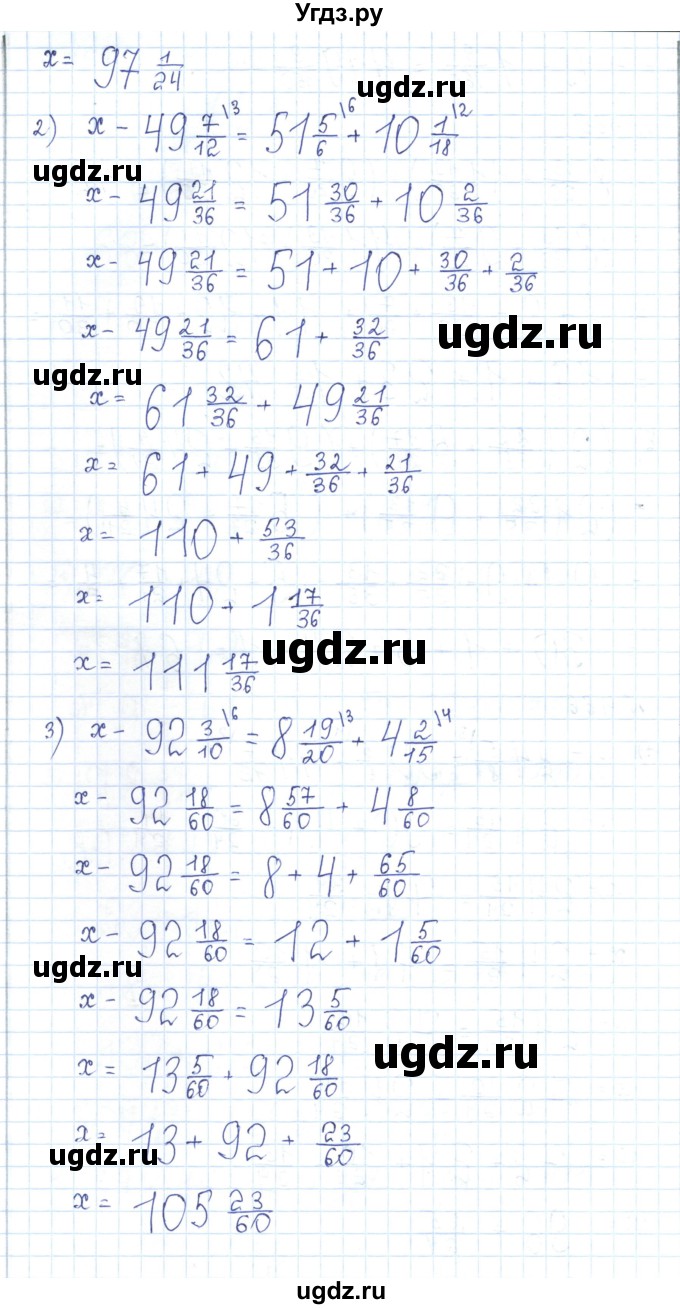 Угдз.ру
x = 97 1/24
ugdz.ru
2) x - 49 7/12 \3 = 51 5/6 \6 + 10 1/18 \2
ugdz.ru
x - 49 21/36 = 51 30/36 + 10 2/36
x - 49 21/36 = 51 + 10 + 30/36 + 2/36
x - 49 21/36 = 61 + 32/36
ugdz.ru
ugdz.ru
x = 61 32/36 + 49 21/36
x = 61 + 49 + 32/36 + 21/36
x = 110 + 53/36
x = 110 + 1 17/36
ugdz.ru
x = 111 17/36
3) x - 92 3/10 \6 = 8 19/20 \3 + 4 2/15 \4
x - 92 18/60 = 8 57/60 + 4 8/60
x - 92 18/60 = 8 + 4 + 65/60
x - 92 18/60 = 12 + 1 5/60
ugdz.ru
x - 92 18/60 = 13 5/60
ugdz.ru
x = 13 5/60 + 92 18/60
x = 13 + 92 + 23/60
ugdz.ru
x = 105 23/60
ugdz.ru